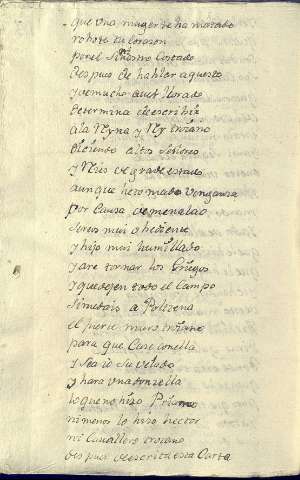 que una muger se ha matado
robote su corazon
por el siniestro costado
despues de hablar aquesto
y de mucho aver llorado
determina de escribir
a la Reyna y Rey troyano
diciendo altos señores
y Reies de grade estado
aunque hezo mado venganza
por causa de menalao
sereis mui obediente
y hijo mui humillado
y are tornar los Griegos
y que dejen todo el campo
si me dais a Polizena
el fuerte muro troiano
para que case con ella
y sea io su velado
y hara una donzella
lo que no hizo Priamo
ni menos lo hizo hector
ni Cauallero troiano
despues de escrita esta Carta